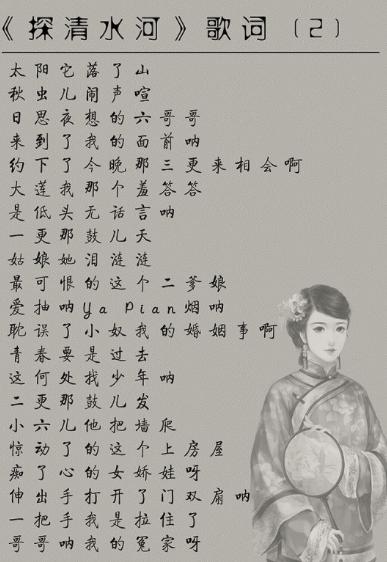 《探清水河》歌词（2）
太阳它落了山
秋虫儿闹声喧
日思夜想的六哥哥
来到了我的面前呐
约下了今晚那三更来相会啊
大莲我那个羞答答
是低头无话言呐
一更那鼓儿天
姑娘她泪涟涟
最可恨的这个二爹娘
爱抽呐Ya Pian烟呐
耽误了小奴我的婚姻事啊
青春要是过去
这何处找少年呐
二更那鼓儿发
小六儿他把墙爬
惊动了的这个上房屋
痴了心的女娇娃呀
伸出手打开了门双扇呐
一把手我是拉住了
哥哥呐我的冤家呀